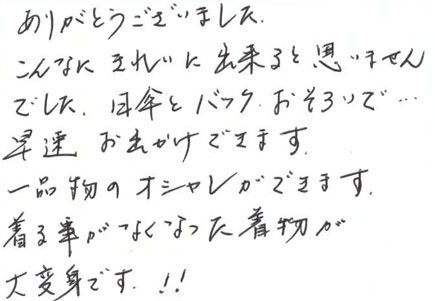 ありがとうございました.
こんなに きれいに 出来ると思いません
でした. 日傘と バック. おそろいで…
早速 お出かけできます.
一品物の オシャレができます.
着る事がなくなった着物が
大変身です. !!